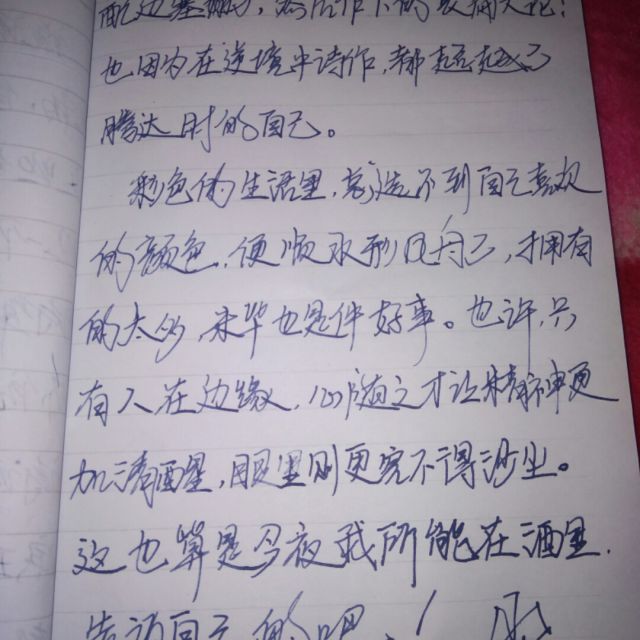 也因为在逆境中诗作,都超越了
腾达时的自己。
彩色的生活里,总选不到自己喜欢
的颜色,便顺水形只舟了,拥有
的太多,未毕也是件好事。也许,只
有人在边缘,心随之才让精神更
加清洒,眼里则更容不得沙尘。
这也算是今夜我所能在酒里
告诉自己的吧